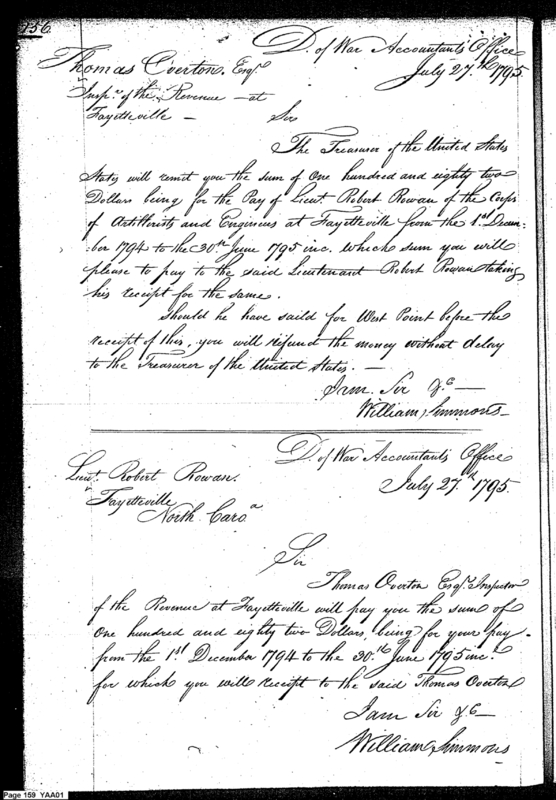 156.
D. of War Accountants Office
July 27.th 1795
Thomas Overton, Esqr.
Inspr. of the Revenue — at
Fayetteville —
Sir
The Treasurer of the United States
States will remit you the sum of One hundred and eighty two
Dollars being for the Pay of Lieut. Robert Rowan of the Corps
of Artillerists and Engineers at Fayetteville from the 1st Decem-
ber 1794 to the 30th June 1795 inc. which sum you will
please to pay to the said Lieutenant Robert Rowan taking
his receipt for the same.
Should he have saild for West Point before the
receipt of this, you will refund the money without delay
to the Treasurer of the United States. —
I am Sir &c —
William Simmons
D. of War Accountants Office
July 27.th 1795.
Lieut. Robert Rowan.
Fayetteville
North Caroa.
Sir
Thomas Overton Esqr. Inspector
of the Revenue at Fayetteville will pay you the sum of
One hundred and eighty two Dollars, being for your pay
from the 1st December 1794 to the 30.th June 1795 inc.
for which you will receipt to the said Thomas Overton
I am Sir &c —
William Simmons
Page 159 YAA01